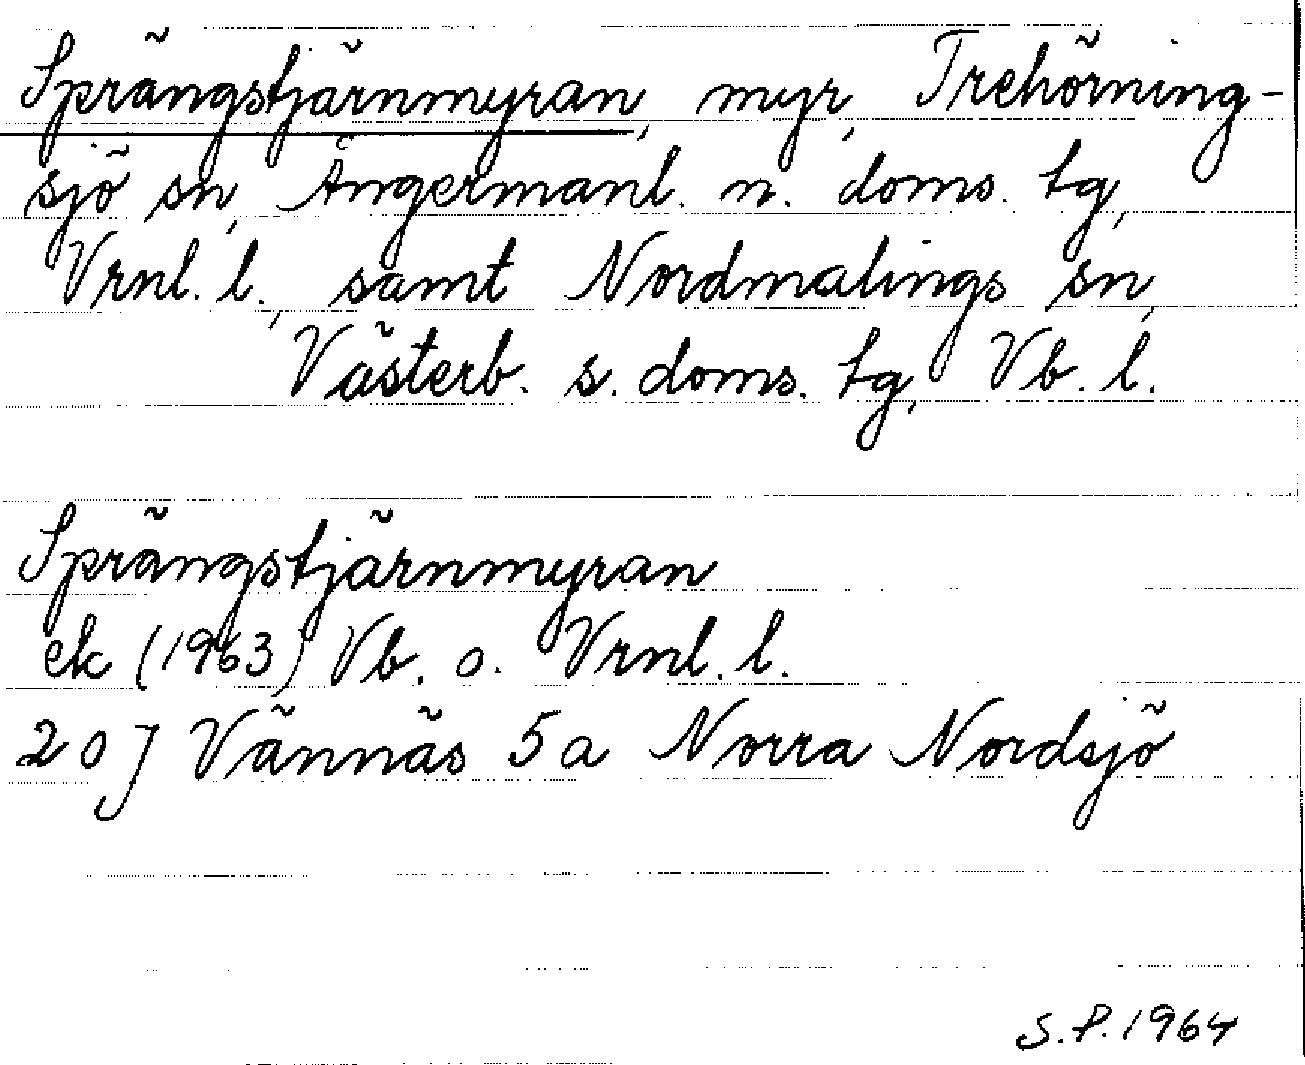 Sprängstjärnmyran, myr, Trehörning-
sjö sn, Ångermanl. n. doms. tg,
Vrnl. l., samt Nordmalings sn,
Västerb. s. doms. tg, Vb. l.
Sprängstjärnmyran
ek (1963) Vb. o. Vrnl. l.
20 J Vännäs 5a Norra Nordsjö
S.P. 1964